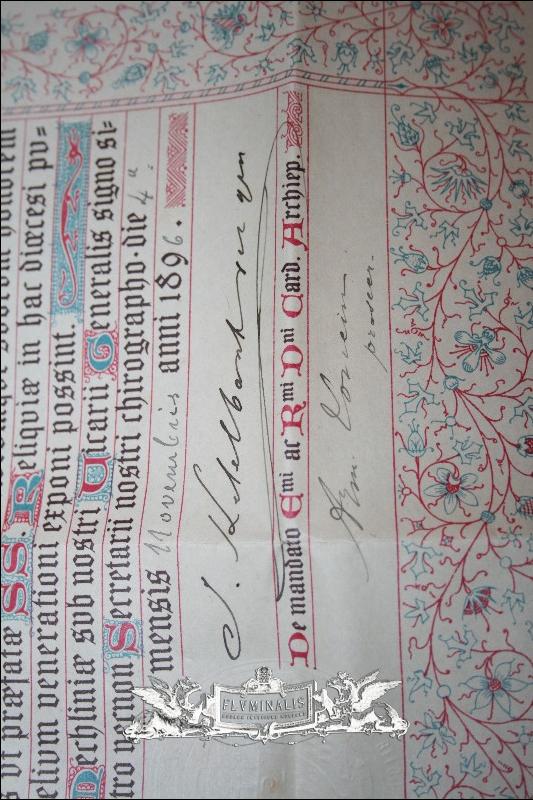 honorem
ut præfatæ SS. Reliquiæ in hac diœcesi pu=
venerationi exponi possint.
Mechliniæ sub nostri Vicarii Generalis signo si=
necnon Secretarii nostri chirographo. die 4ª
mensis Novembris anni 1896.
J.
De mandato Emi ac Rmi Dni Card. Archiep.
prosecr.
FLVMINALIS